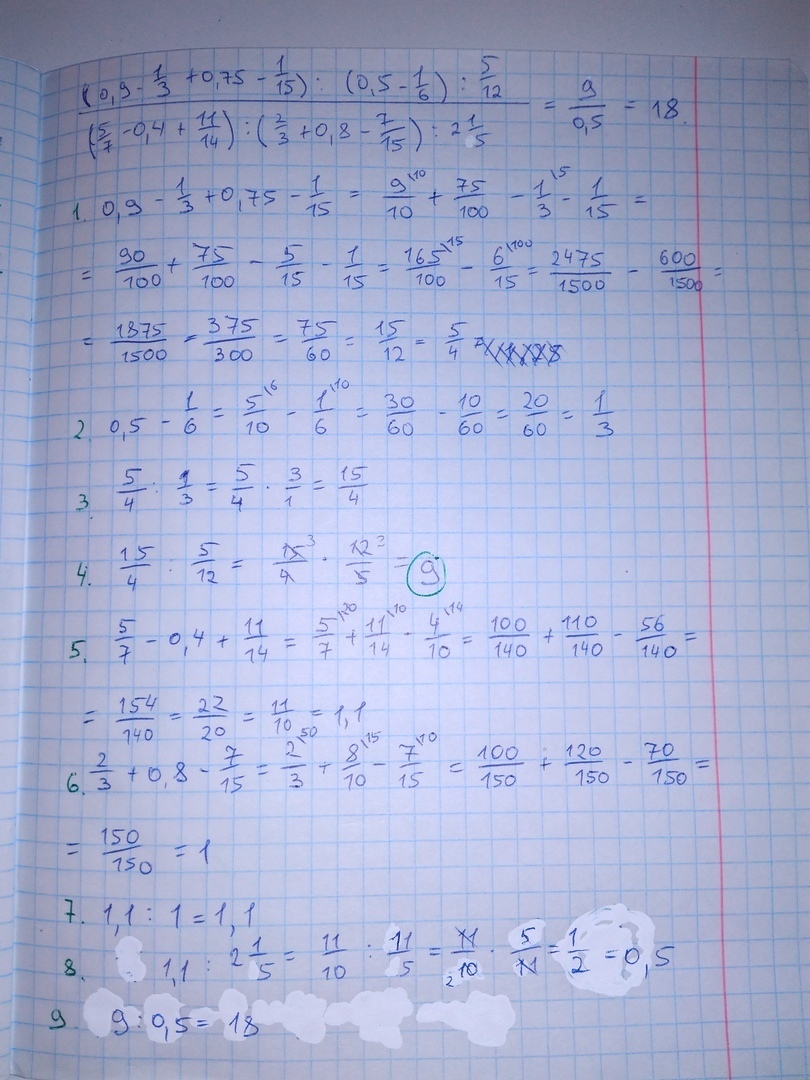 (0,9 - 1/3 + 0,75 - 1/15) : (0,5 - 1/6) : 5/12
(5/7 - 0,4 + 11/14) : (2/3 + 0,8 - 7/15) : 2 1/5 = 9/0,5 = 18
1. 0,9 - 1/3 + 0,75 - 1/15 = 9/10 \10 + 75/100 - 1/3 \5 - 1/15 =
= 90/100 + 75/100 - 5/15 - 1/15 = 165/100 \15 - 6/15 \100 = 2475/1500 - 600/1500 =
= 1875/1500 = 375/300 = 75/60 = 15/12 = 5/4
2. 0,5 - 1/6 = 5/10 \6 - 1/6 \10 = 30/60 - 10/60 = 20/60 = 1/3
3. 5/4 : 1/3 = 5/4 · 3/1 = 15/4
4. 15/4 : 5/12 = 15/4 3 · 12/5 3 = 9
5. 5/7 - 0,4 + 11/14 = 5/7 \20 + 11/14 \10 - 4/10 \14 = 100/140 + 110/140 - 56/140 =
= 154/140 = 22/20 = 11/10 = 1,1
6. 2/3 + 0,8 - 7/15 = 2/3 \50 + 8/10 \15 - 7/15 \10 = 100/150 + 120/150 - 70/150 =
= 150/150 = 1
7. 1,1 : 1 = 1,1
8. 1,1 : 2 1/5 = 11/10 : 11/5 = 11/10 2 · 5/11 = 1/2 = 0,5
9 9 : 0,5 = 18